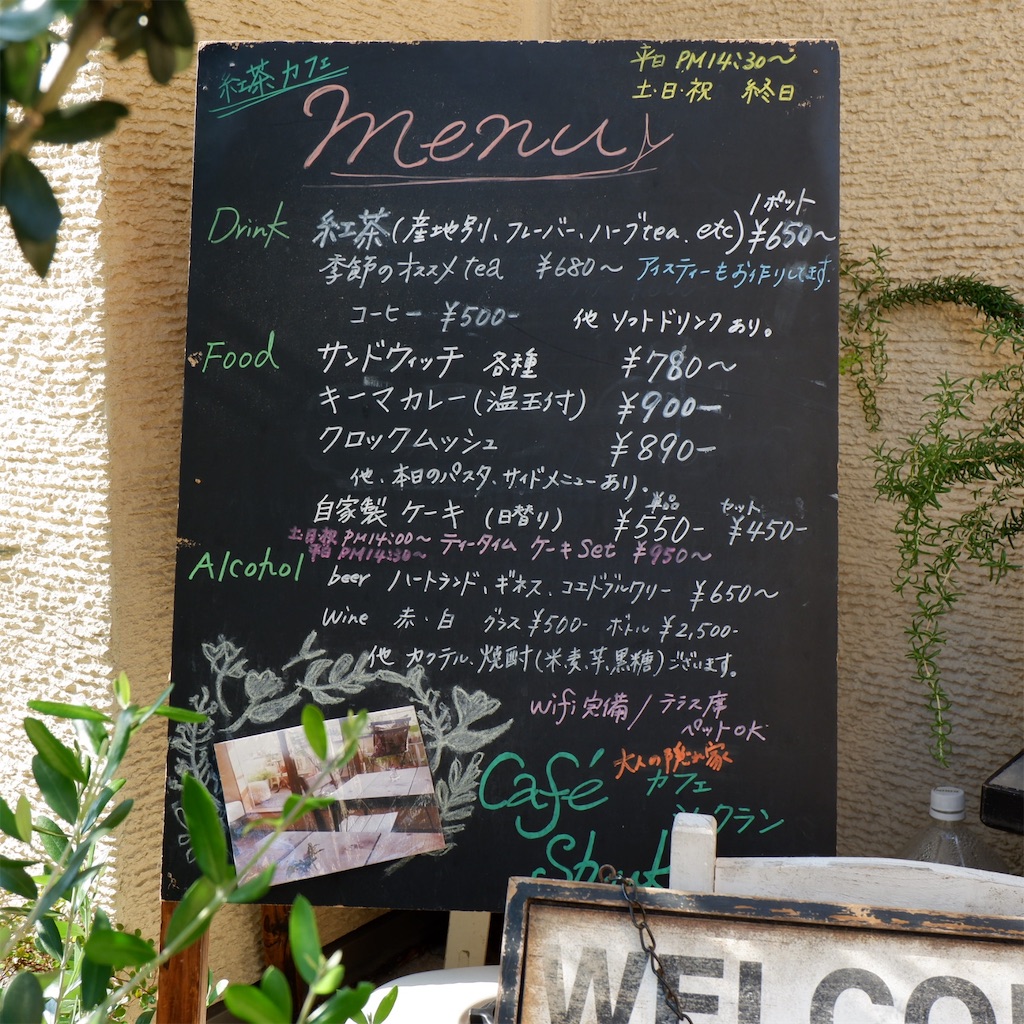 紅茶カフェ
平日 PM14:30〜
土・日・祝 終日
menu
1ポット
Drink 紅茶(産地別、フレーバー、ハーブtea. etc) ¥650〜
季節のオススメtea ¥680〜 アイスティーもお作りしてます.
コーヒー ¥500-
他 ソフトドリンクあり。
Food サンドウィッチ 各種 ¥780〜
キーマカレー(温玉付) ¥900-
クロックムッシュ ¥890-
他、本日のパスタ、サイドメニューあり。
単品 セット
自家製 ケーキ (日替り) ¥550- ¥450-
土日祝 PM14:00〜 ティータイム ケーキSet ¥950〜
平日 PM14:30〜
Alcohol beer ハートランド、ギネス、コエドブルワリー ¥650〜
Wine 赤・白 グラス ¥500- ボトル ¥2,500-
他 カクテル、焼酎(米、麦、芋、黒糖)ございます。
wifi完備/テラス席
ペットOK
大人の隠れ家
Café カフェ
クラン
WELCO